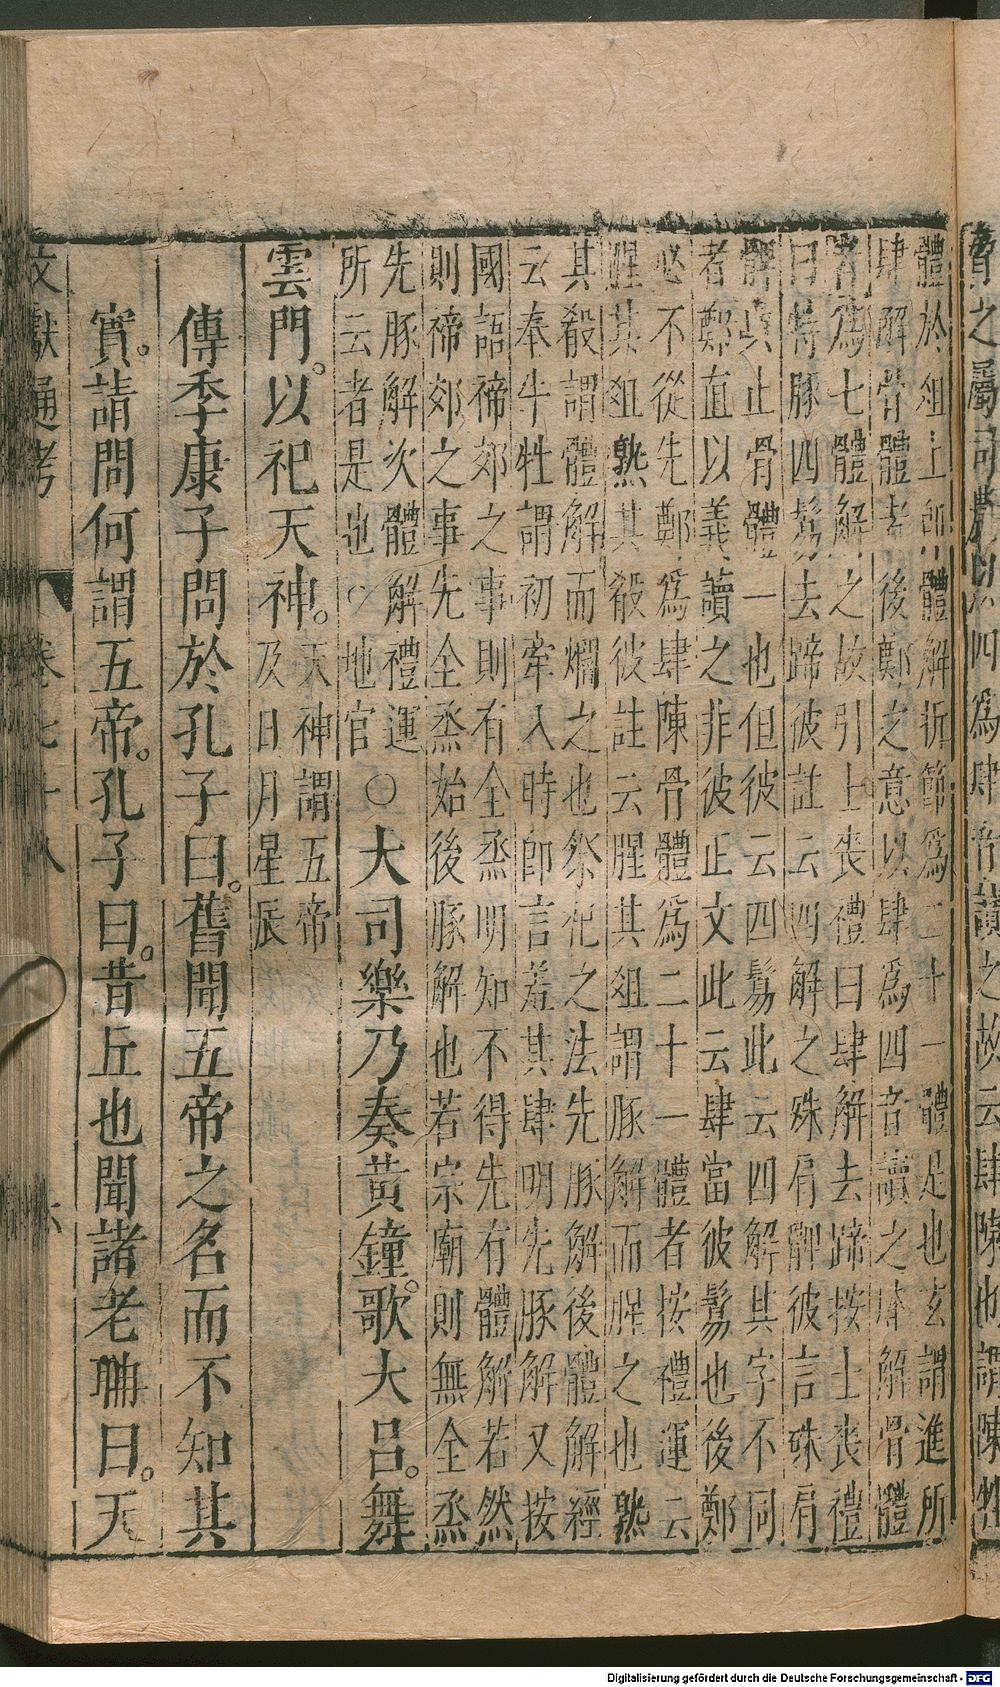 賓之屬司農以四為肆音讀之故云肆陳也謂陳牲
體於俎上即體解折節為二十一體是也玄謂進所
肆解骨體者後鄭之意以肆為四音讀之解骨體
者為七體解之故引上喪禮曰肆解去蹄按士喪禮
曰特豚四鬄去蹄彼註云四解之殊肩髀彼言殊肩
髀此止骨體一也但彼云四鬄此云四解其字不同
者鄭直以義讀之非彼正文此云肆當彼鬄也後鄭
必不從先鄭為肆陳骨體為二十一體者按禮運云
腥其俎熟其殽彼註云腥其俎謂豚解而腥之也熟
其殽謂體解而爓之也祭祀之法先豚解後體解經
云奉牛牲謂初牽入時即言羞其肆明先豚解又按
國語禘郊之事則有全烝明知不得先有體解若然
則禘郊之事先全烝始後豚解也若宗廟則無全烝
先豚解次體解禮運
所云者是也○地官
○大司樂乃奏黃鐘。歌大呂。舞
雲門。以祀天神。
天神謂五帝
及日月星辰
傳季康子問於孔子曰。舊聞五帝之名而不知其
實。請問何謂五帝。孔子曰。昔丘也聞諸老聃曰。天
文獻通考 卷七十八 六
Digitalisierung gefördert durch die Deutsche Forschungsgemeinschaft - DFG